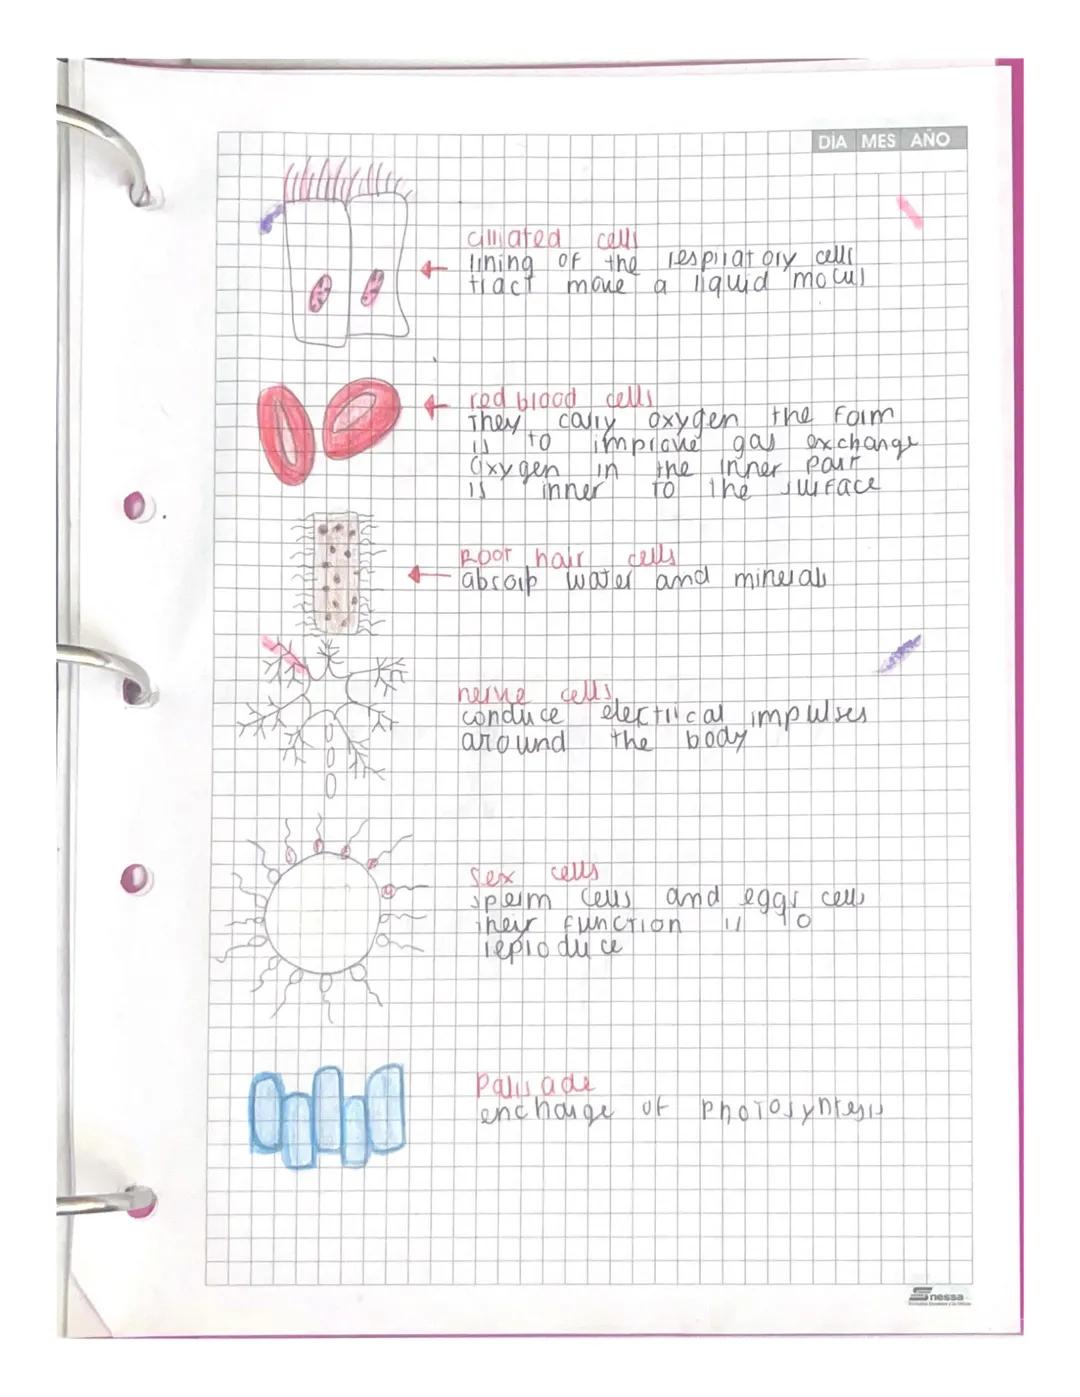 DÍA MES AÑO
cilliated cells
lining of the respiratory cells
tract move a liquid mocul
red blood cells
They carry oxygen the form
is to improve gas exchange
Oxygen in the inner part
is inner to the surface
Root hair cells
absorp water and minerals
nerve cells
conduce electrical impulses
around the body
Sex cells
sperm cells and eggs cells
their function is to
reproduce
Palisade
encharge of photosyntesis
nessa